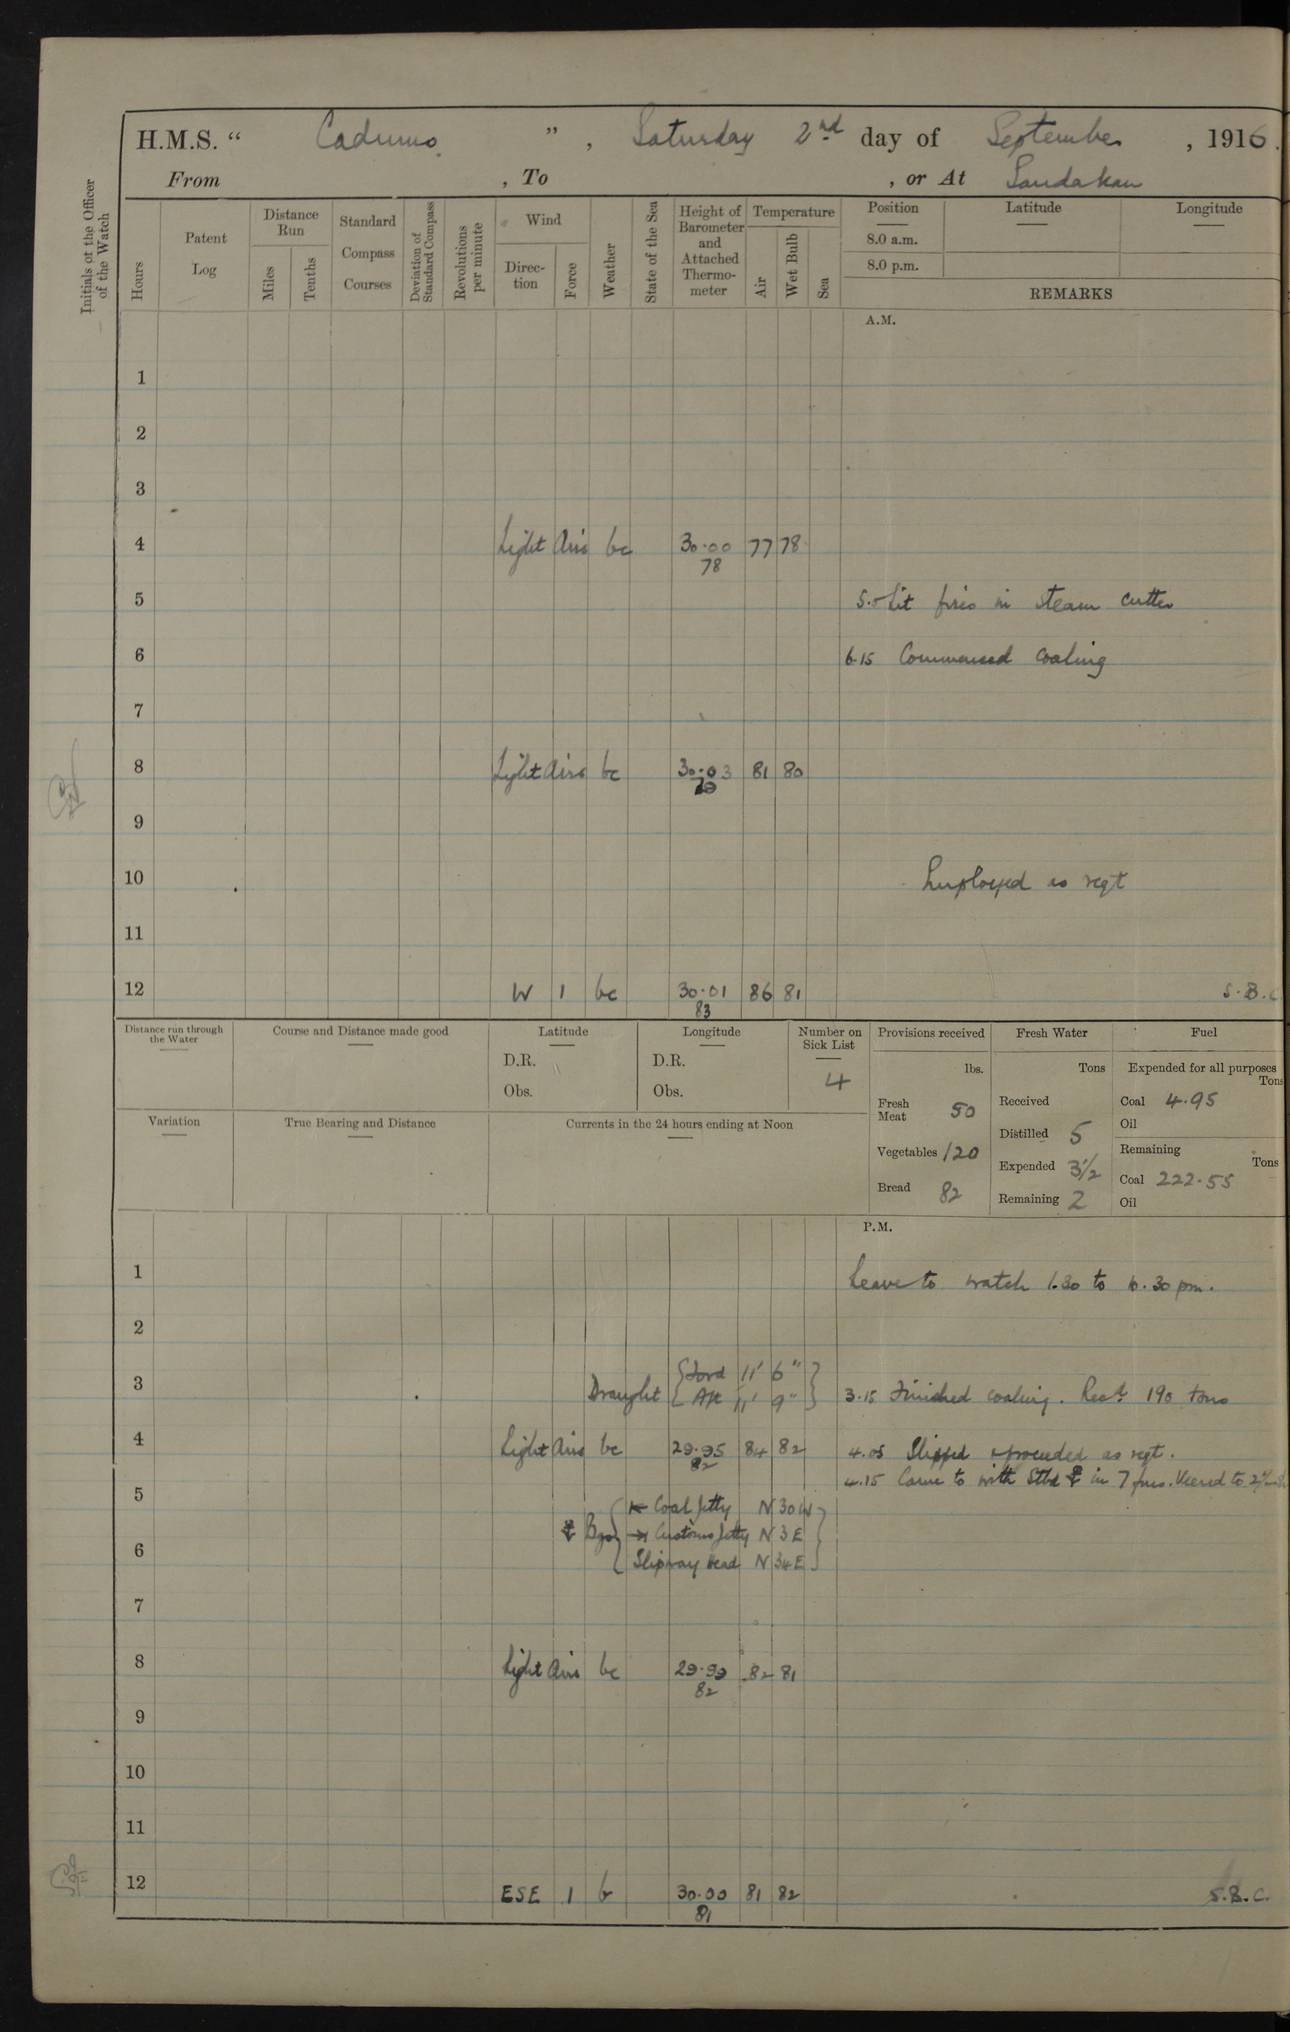 H.M.S. " Cadmus ", Saturday 2nd day of September, 1916.
From , To , or At Sandakan
Initials of the Officer of the Watch
Hours
Patent Log
Distance Run
Miles
Tenths
Standard Compass Courses
Deviation of Standard Compass
Revolutions per minute
Wind
Direction
Force
Weather
State of the Sea
Height of Barometer and Attached Thermometer
Temperature
Air
Wet Bulb
Sea
Position Latitude Longitude
8.0 a.m.
8.0 p.m.
REMARKS
A.M.
1
2
3
4 Light Airs bc 30.00 77 78
78
5 5.0 Lit fires in steam cutter
6 6.15 Commenced coaling
7
8 Light Airs bc 30.03 81 80
9
10 Employed as reqt
11
12 W 1 bc 30.01 86 81 S.B.C
83
Distance run through the Water
Course and Distance made good
Latitude
D.R.
Obs.
Longitude
D.R.
Obs.
Number on Sick List
4
Variation
True Bearing and Distance
Currents in the 24 hours ending at Noon
Provisions received
lbs.
Fresh Meat 50
Vegetables 120
Bread 82
Fresh Water
Tons
Received
Distilled 5
Expended 3½
Remaining 2
Fuel
Expended for all purposes
Tons
Coal 4.95
Oil
Remaining
Tons
Coal 222.55
Oil
P.M.
1 Leave to watch 1.30 to 10.30 pm.
2
Draught { Ford 11' 6" }
3 { Aft 11' 9" } 3.15 Finished coaling. Recd. 190 tons
4 Light Airs bc 29.95 84 82 4.05 Slipped & proceeded as reqt.
82
4.15 Came to with Stbd ⚓ in 7 fms. Veered to 2
5 Coal Jetty N 30 W
⚓ Bgs { Customs Jetty N 3 E
6 Slipway head N 34 E
7
8 Light Airs bc 29.99 82 81
82
9
10
11
12 ESE 1 b 30.00 81 82 S.B.C.
81